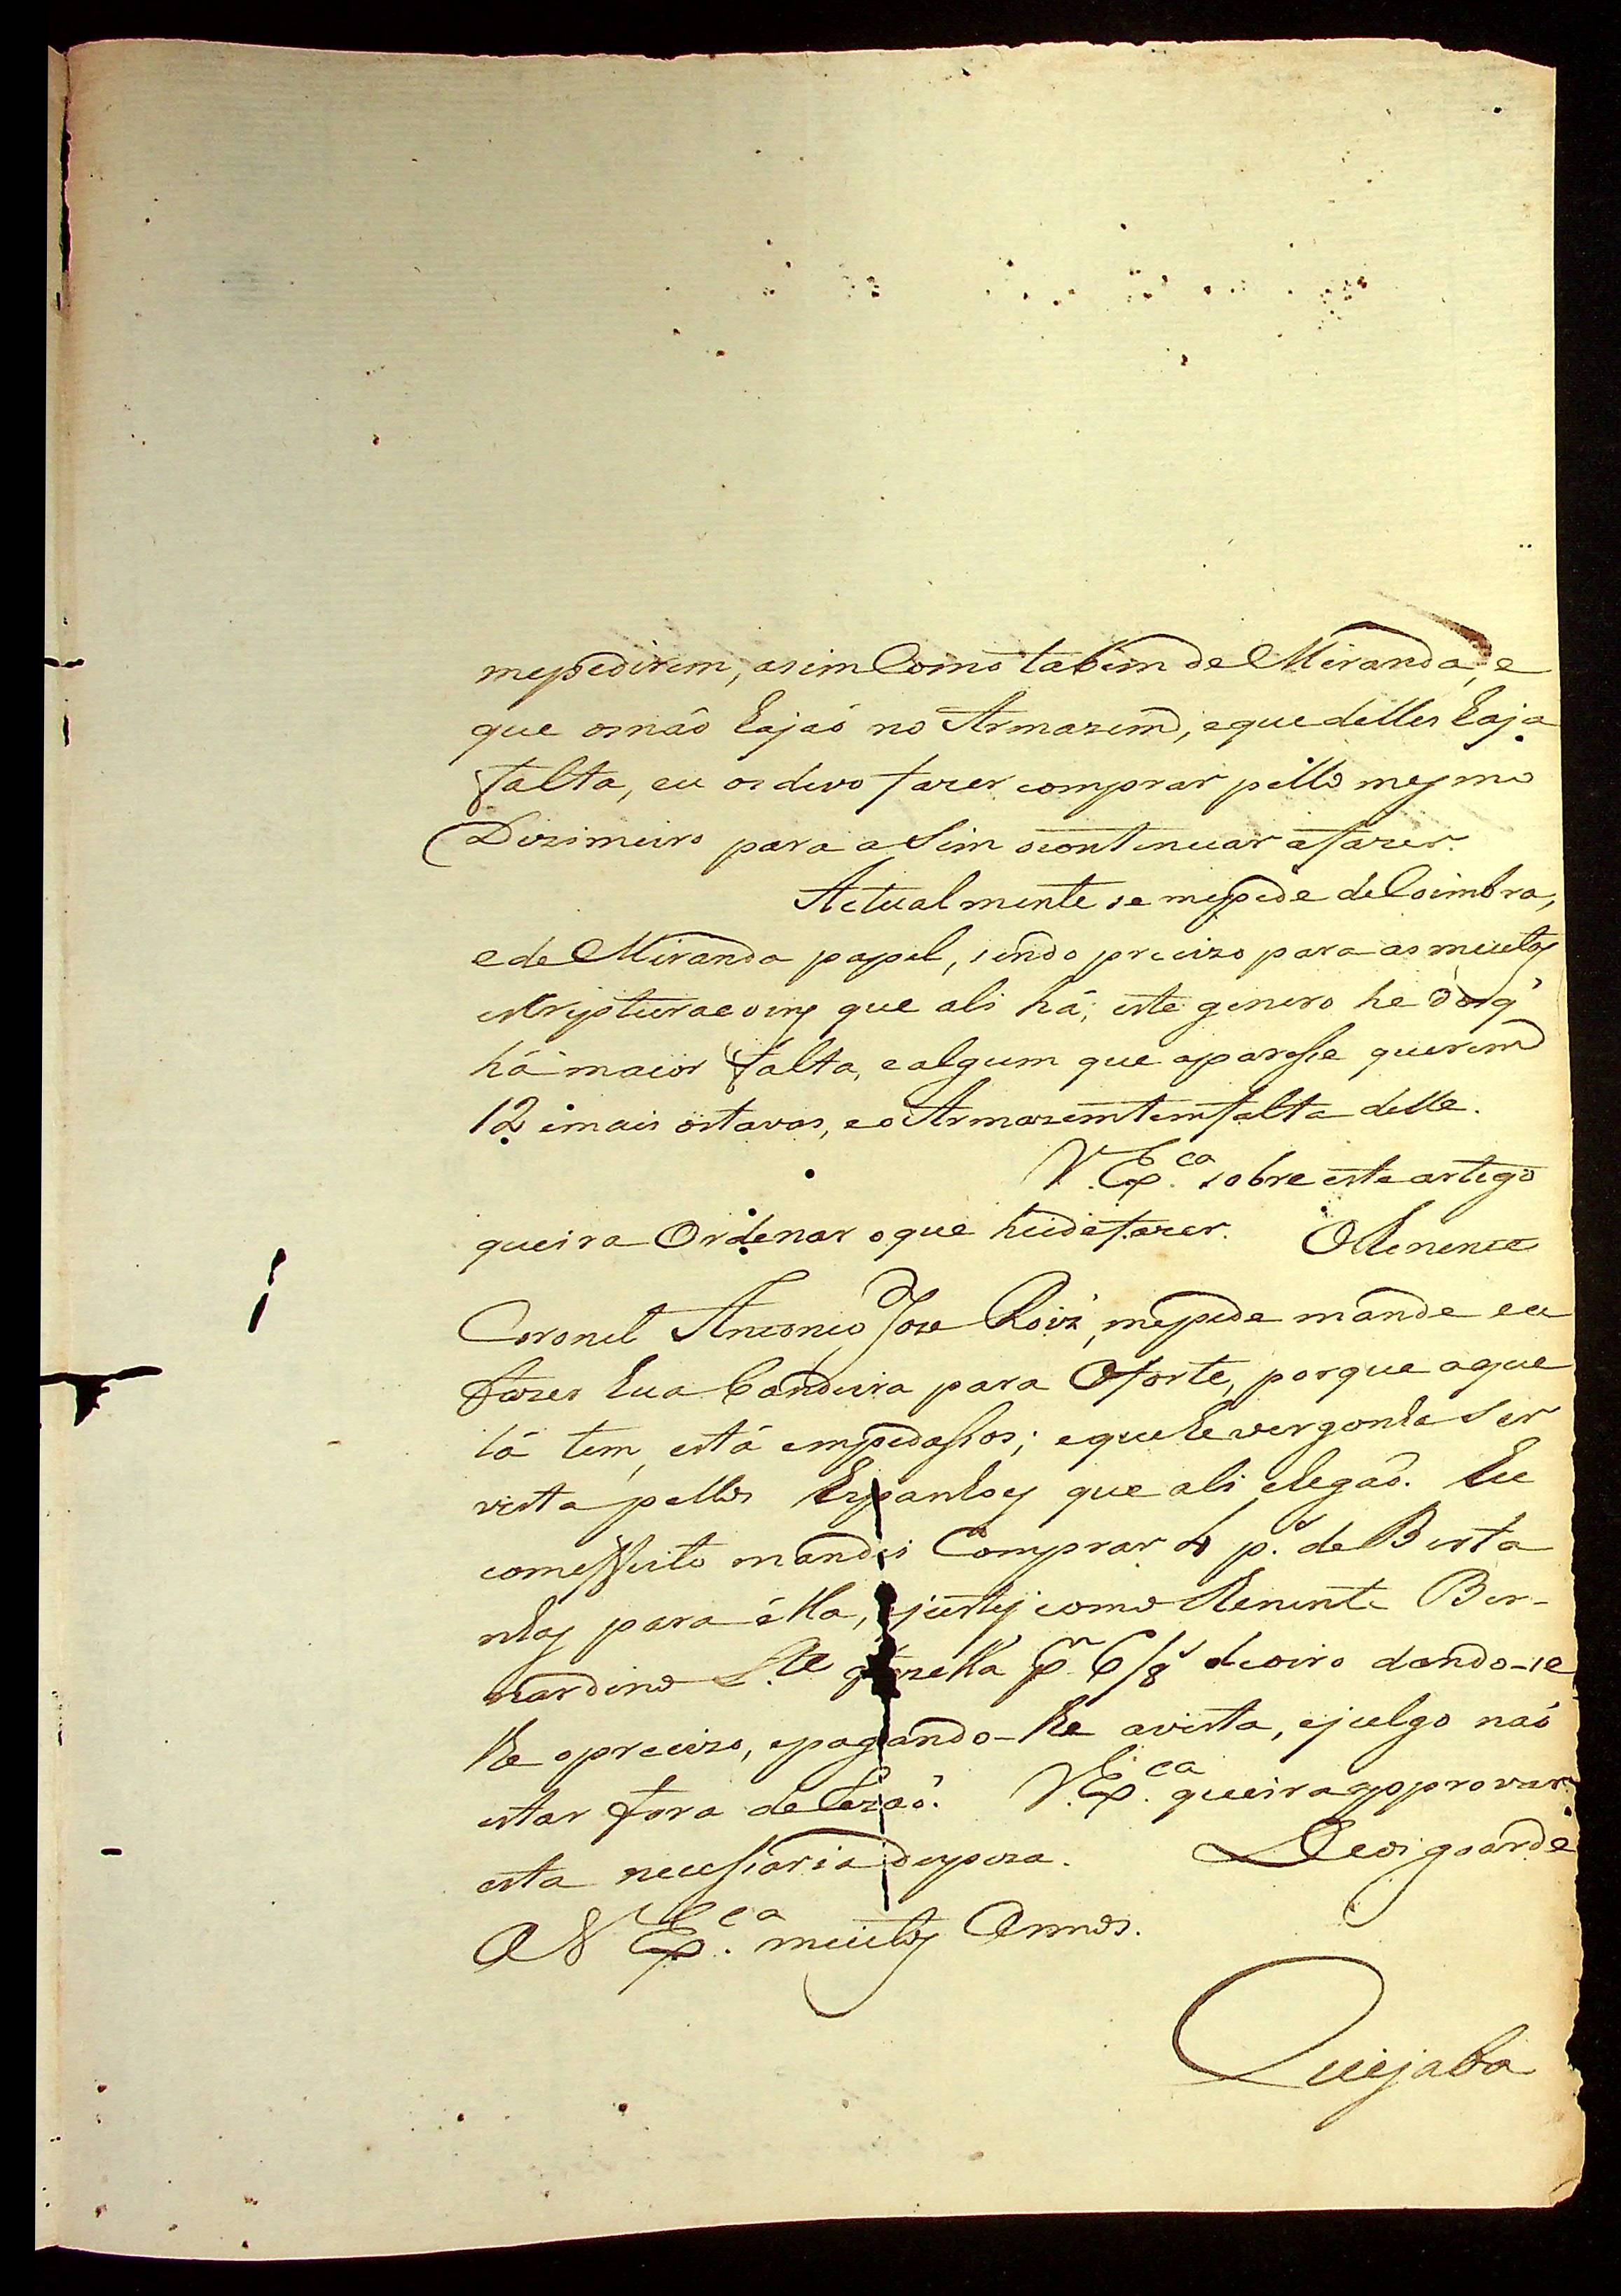 mepedirem, asim Como tabem de Miranda, e
que os não hajaõ no Armazem, e que delles haja
falta, eu os devo fazer comprar pello mesmo
Dizimeiro para asim o continuar a fazer.
Actualmente se me pede de Coimbra,
e de Miranda papel, sendo precizo para as muitas
escripturaçoins que ali há; este genero he dos q'
há maior falta, e algum que aparesse querem
12 e mais oitavas, e o Armazem tem falta delle.
V. Exca. sobre este artigo
queira Ordenar o que heide fazer. O Tenente
Coronel Antonio Joze Roiz, me pede mande eu
fazer hua bandeira para o forte, porque a que
lá tem, está empedassos; e que he vergonha ser
vista pellos Espanhoes que ali chegaõ. Eu
com effeito mandei Comprar 4 p.s de Berta
nhas para élla, e justei com o Tenente Ber-
nardino Lte. fazella pr. 6/8 de oiro dando-se
lhe o precizo, e pagando-lhe a vista, e julgo naõ
estar fora de Rezaõ. V. Exca. queira approvar
esta necessaria despeza. Deos goarde
A V Exca. muitos Annos.
Cuejaba